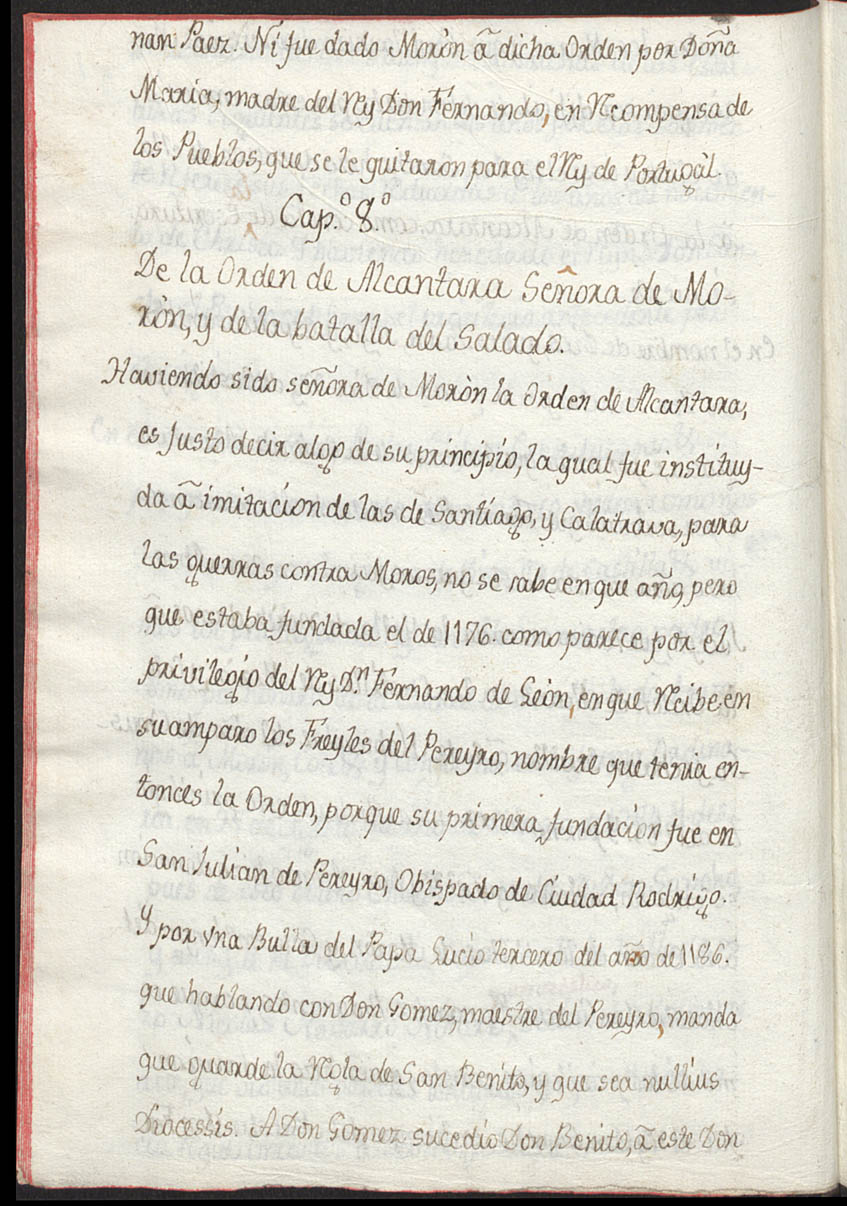 nan Paez. Ni fue dado Moròn â dicha Orden por Doña
Maria, madre del Rey Don Fernando, en Recompensa de
los Pueblos, que se le quitaron para el Rey de Portugàl.
Cap.º 8.º
De la Orden de Alcantara Señora de Mo-
ròn, y de la batalla del Salado.
Haviendo sido señora de Moròn la Orden de Alcantara,
es justo decir algo de su principio, la qual fue instituy-
da â imitacion de las de Santiago, y Calatrava, para
las guerras contra Moros, no se sabe en que año, pero
que estaba fundada el de 1176. como parece por el
privilegio del Rey D.n Fernando de Leòn, en que Recibe en
su amparo los Freyles del Pereyro, nombre que tenia en-
tonces la Orden, porque su primera fundacion fue en
San Julian de Pereyro, Obispado de Ciudad Rodrigo.
Y por vna Bulla del Papa Lucio tercero del año de 1186.
que hablando con Don Gomez, maestre del Pereyro, manda
que guarde la Regla de San Benito, y que sea nullius
Diocessis. A Don Gomez sucediò Don Benito, â este Don